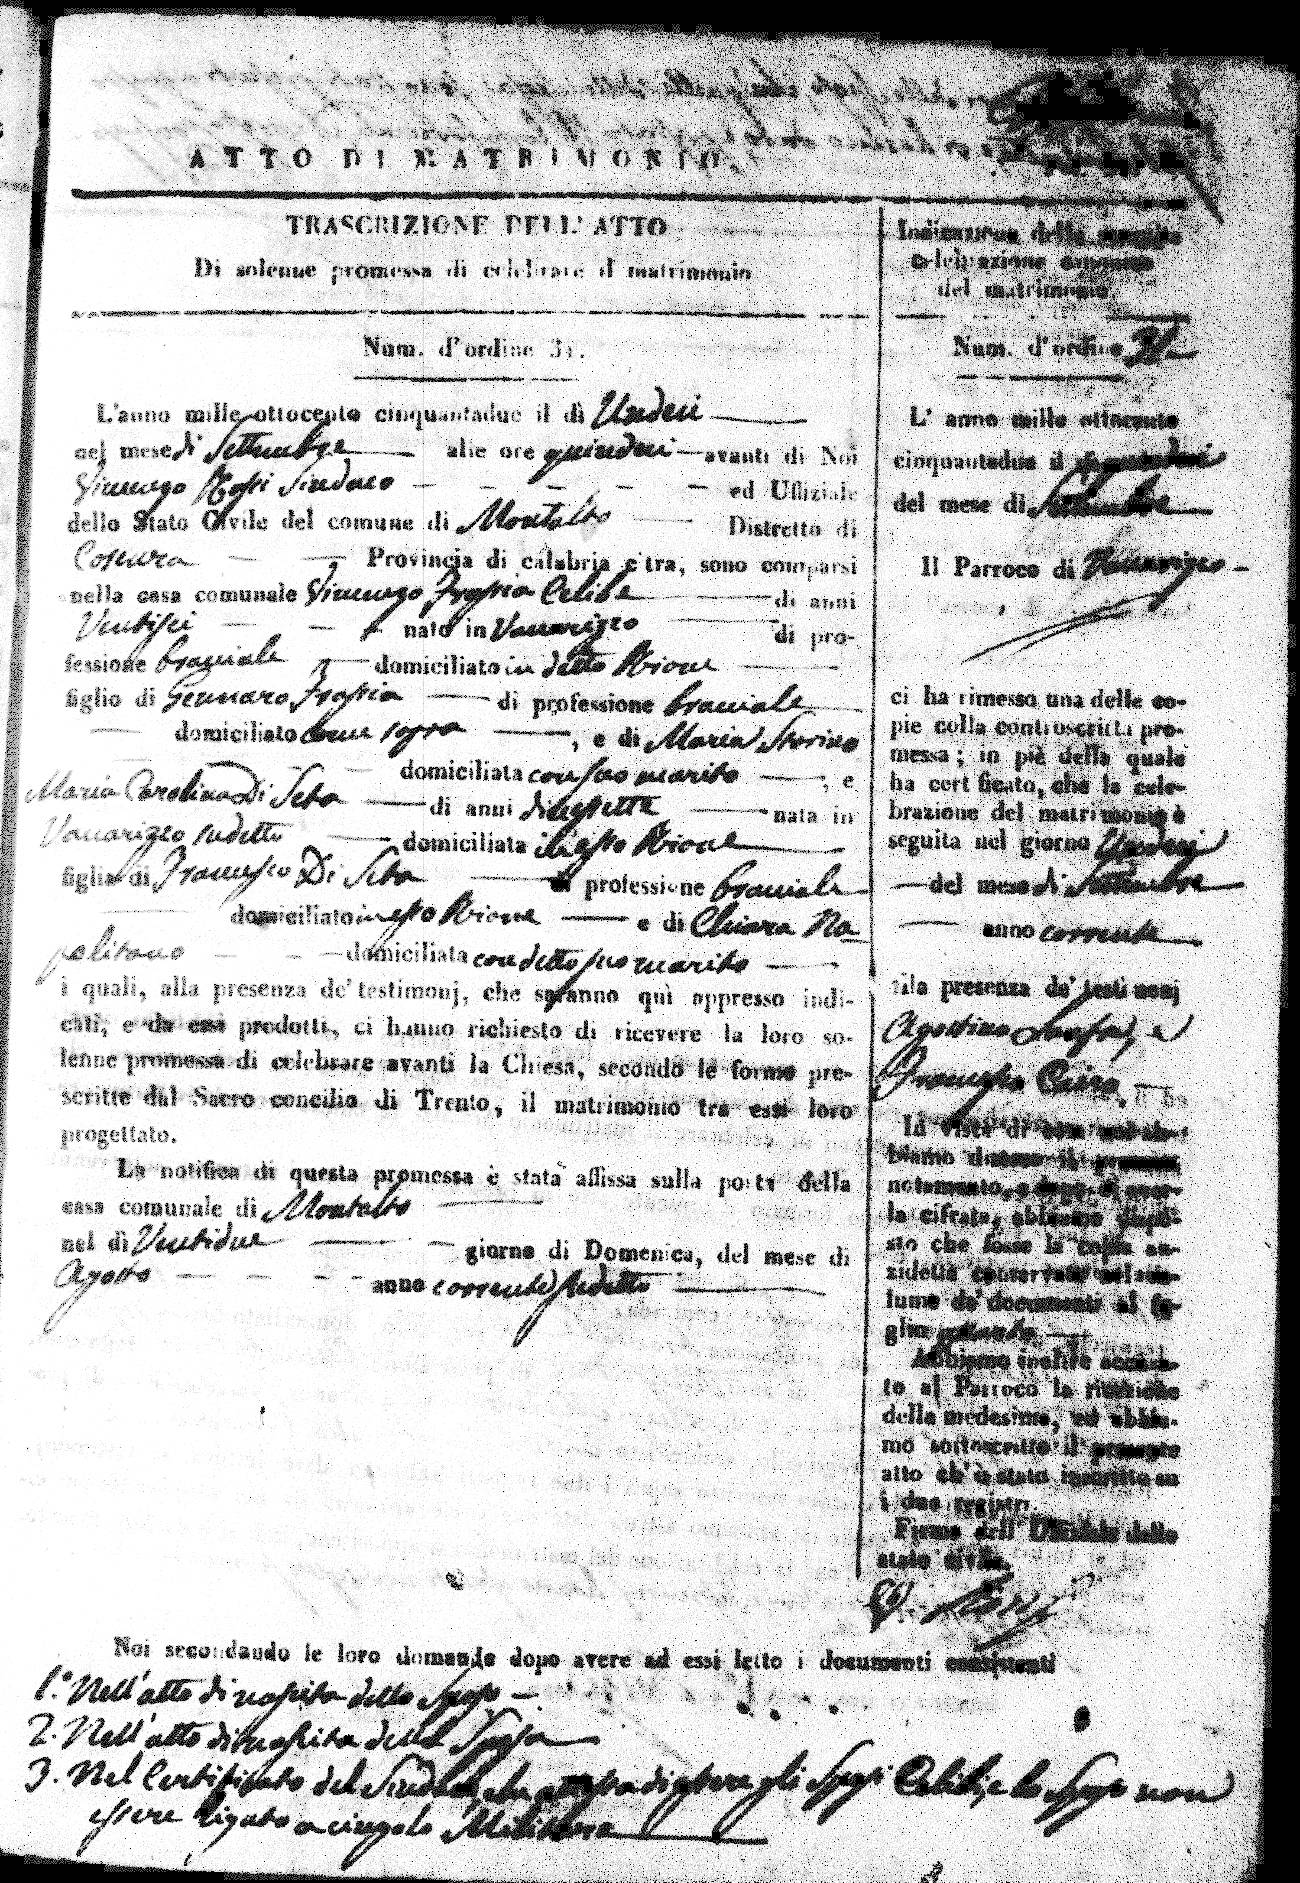 ATTO DI MATRIMONIO.
TRASCRIZIONE DELL' ATTO
Di solenne promessa di celebrare il matrimonio
Num. d'ordine 31.
L'anno mille ottocento cinquantadue il dì Undeci
nel mese di Settembre alle ore quindeci avanti di Noi
Vincenzo Rossi Sindaco ed Uffiziale
dello Stato Civile del comune di Montalto Distretto di
Cosenza Provincia di calabria citra, sono comparsi
nella casa comunale Vincenzo Frassia Celibe di anni
Ventisei nato in Vaccarizzo di pro-
fessione bracciale domiciliato in detto Rione
figlio di Gennaro Frassia di professione bracciale
domiciliato come sopra, e di Maria Storino
domiciliata con suo marito, e
Maria Carolina Di Seta di anni diciassette nata in
Vaccarizzo sudetto domiciliata in esso Rione
figlia di Francesco Di Seta di professione bracciale
domiciliato in esso Rione e di Chiara Na-
politano domiciliata con detto suo marito
i quali, alla presenza de' testimonj, che saranno quì appresso indi-
cati, e da essi prodotti, ci hanno richiesto di ricevere la loro so-
lenne promessa di celebrare avanti la Chiesa, secondo le forme pre-
scritte dal Sacro concilio di Trento, il matrimonio tra essi loro
progettato.
La notifica di questa promessa è stata affissa sulla porta della
casa comunale di Montalto
nel dì Ventidue giorno di Domenica, del mese di
Agosto anno corrente sudetto
Indicazione della seguita
celebrazione canonica
del matrimonio
Num. d'ordine 31
L' anno mille ottocento
cinquantadue il dì
del mese di Settembre
Il Parroco di Vaccarizzo
ci ha rimesso una delle co-
pie colla controscritta pro-
messa; in piè della quale
ha certificato, che la cele-
brazione del matrimonio è
seguita nel giorno Undeci
del mese di Settembre
anno corrente
alla presenza de' testimonj
Agostino e
Francesco Cairo
In vista di essa noi ab-
biamo disteso il presente
notamento, e dopo di aver-
la cifrata, abbiamo dispo-
sto che fosse la copia an-
zidetta conservata nel vo-
lume de' documenti al fo-
glio
Abbiamo inoltre accusa-
to al Parroco la ricezione
della medesima, ed abbia-
mo sottoscritto il presente
atto ch' è stato inscritto su
i due registri.
Firma dell' Uffiziale dello
stato civile.
V. Rossi
Noi secondando le loro domande dopo avere ad essi letto i documenti consistenti
1.° Nell'atto di nascita dello Sposo
2. Nell'atto di nascita della Sposa
3. Nel Certificato del Sindaco, che attesta di essere gli Sposi Celibi, e lo Sposo non
essere ligato a cingolo Militare